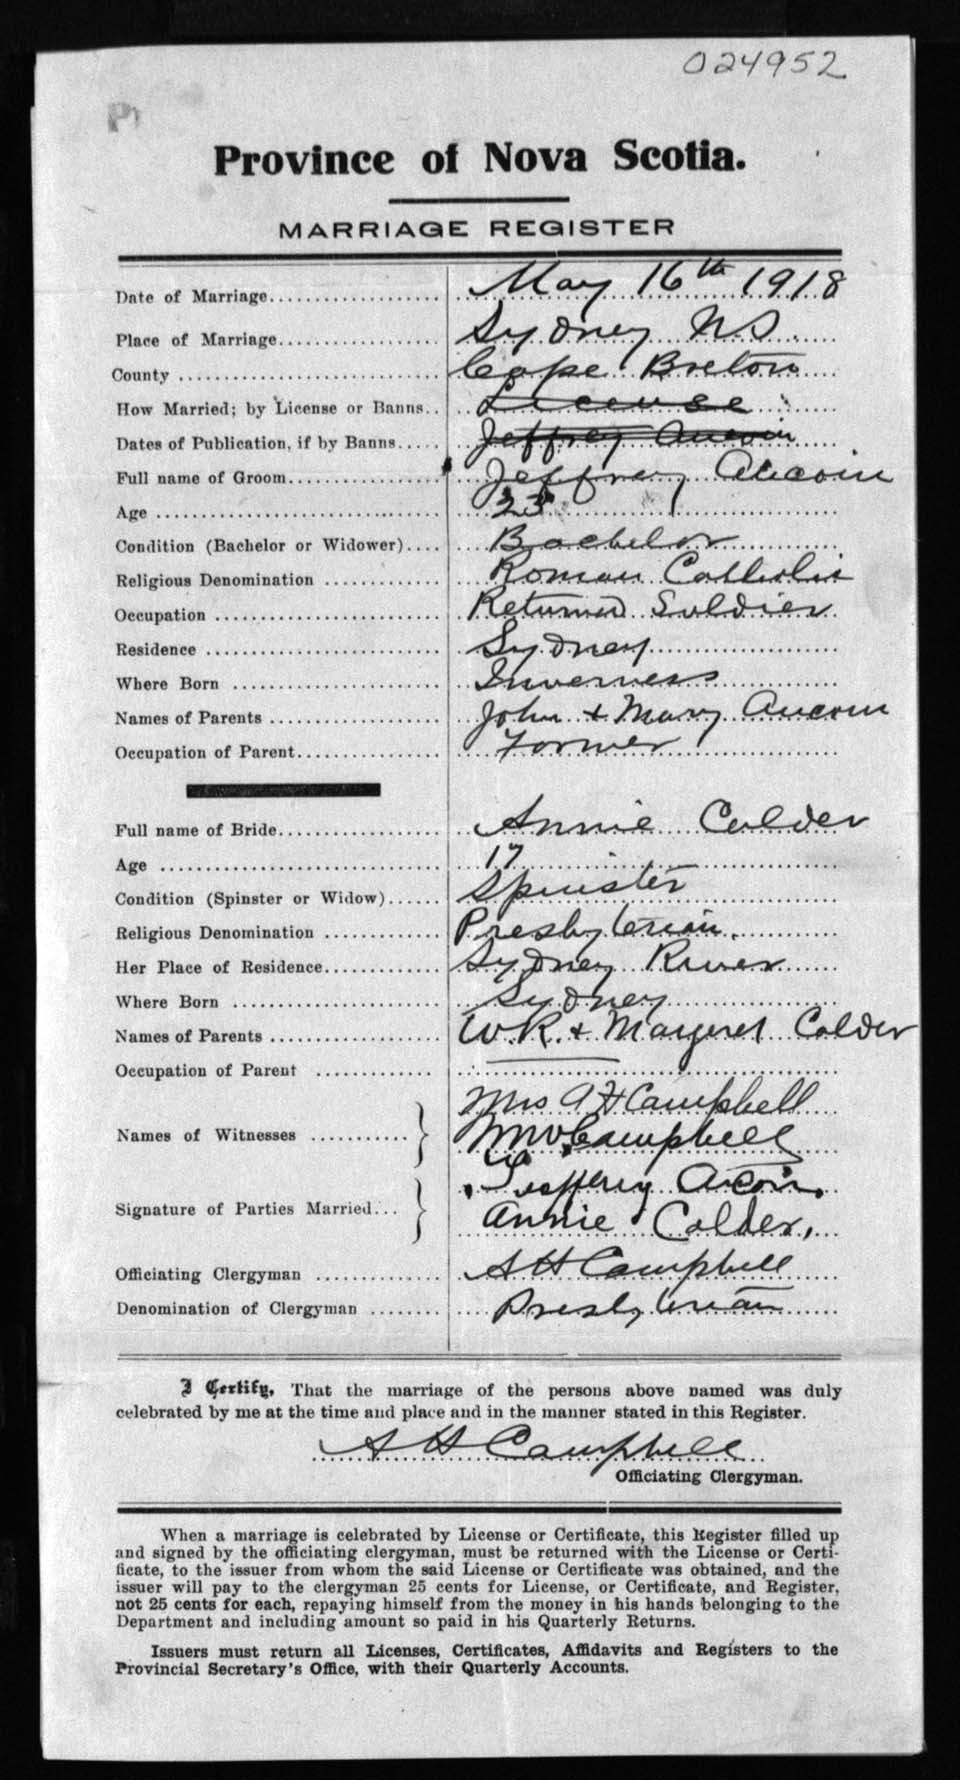 024952
Province of Nova Scotia.
MARRIAGE REGISTER
Date of Marriage.................... May 16th 1918
Place of Marriage................... Sydney N.S.
County ............................. Cape Breton
How Married; by License or Banns.. License
Dates of Publication, if by Banns..... Jeffrey Aucoin
Full name of Groom.................. Jeffrey Aucoin
Age ................................ 23
Condition (Bachelor or Widower).... Bachelor
Religious Denomination ............. Roman Catholic
Occupation ......................... Returned Soldier
Residence .......................... Sydney
Where Born ......................... Inverness
Names of Parents ................... John & Mary Aucoin
Occupation of Parent................ Farmer
Full name of Bride.................. Annie Calder
Age ................................ 17
Condition (Spinster or Widow)...... Spinster
Religious Denomination ............. Presbyterian.
Her Place of Residence.............. Sydney River
Where Born ......................... Sydney
Names of Parents ................... W.R. & Margeret Calder
Occupation of Parent ...............
Mrs A H Campbell
Names of Witnesses ............ Campbell
Jeffery Acoin.
Signature of Parties Married... Annie Calder,
Officiating Clergyman .............. A H Campbell
Denomination of Clergyman ......... Presbyterian
I Certify, That the marriage of the persons above named was duly
celebrated by me at the time and place and in the manner stated in this Register.
A H Campbell
Officiating Clergyman.
When a marriage is celebrated by License or Certificate, this Register filled up
and signed by the officiating clergyman, must be returned with the License or Certi-
ficate, to the issuer from whom the said License or Certificate was obtained, and the
issuer will pay to the clergyman 25 cents for License, or Certificate, and Register,
not 25 cents for each, repaying himself from the money in his hands belonging to the
Department and including amount so paid in his Quarterly Returns.
Issuers must return all Licenses, Certificates, Affidavits and Registers to the
Provincial Secretary's Office, with their Quarterly Accounts.